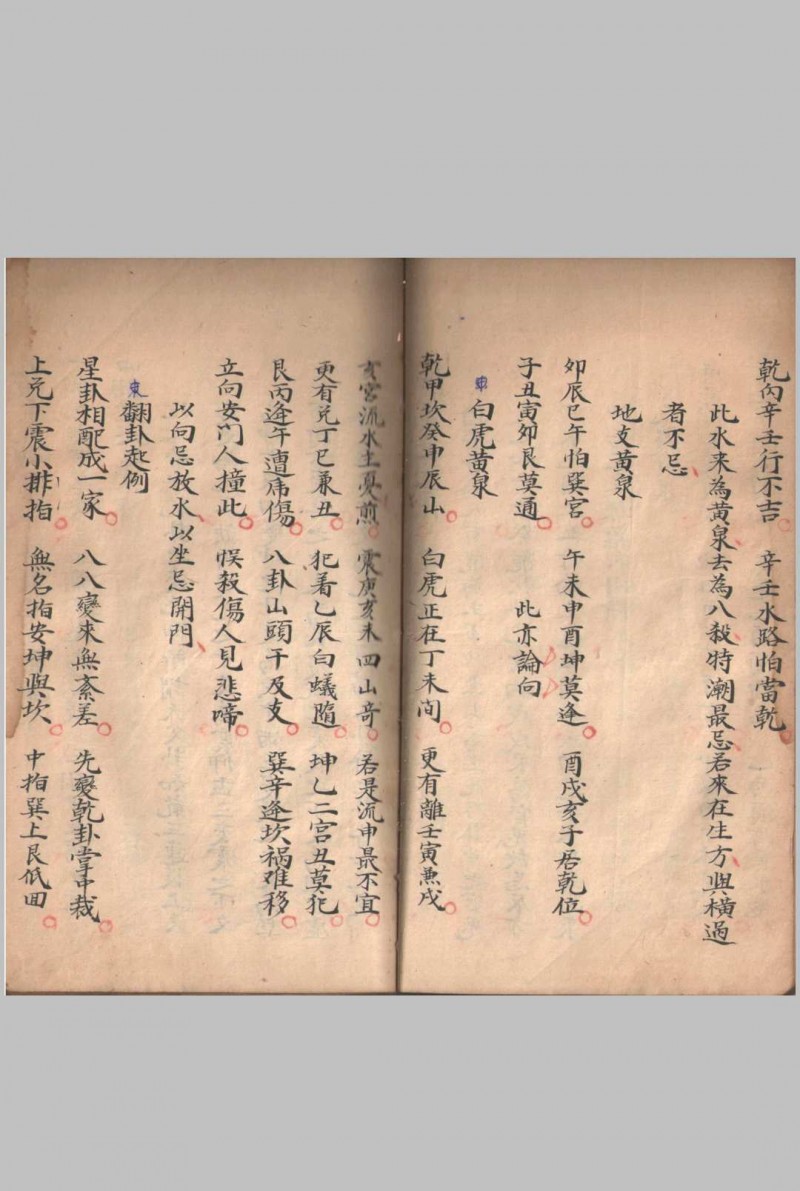 乾丙辛壬行不吉 辛壬水路怕當乾
此水来為黄泉去為八殺特潮最忌若來在生方與橫過
者不忌
地支黄泉
卯辰巳午怕巽宮 午未申酉坤莫逢 酉戌亥子居乾位
子丑寅卯艮莫通 此亦論向
白虎黄泉
乾甲坎癸申辰山 白虎正在丁未间 更有離壬寅兼戌
亥宮流水主憂煎 震庚亥未四山奇 若是流申最不宜
更有兑丁巳兼丑 犯着乙辰白蟻隨 坤乙二宮丑莫犯
艮丙逢午遭虎傷 八卦山頭干及支 巽辛逢坎祸难移
立向安門人撞此 悮殺傷人見悲啼
以向忌放水以坐忌開門
翻卦起例
星卦相配成一家 八八變來無紊差 先變乾卦掌中裁
上兑下震小排指 無名指安坤與坎 中指巽上艮低回